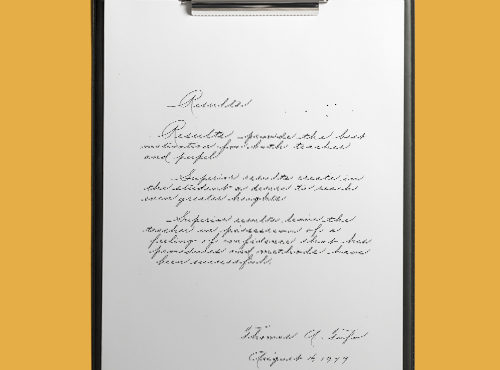 Results
Results provide the best
motivation for both teacher
and pupil.
Superior results create in
the student a desire to reach
even greater heights.
Superior results leave the
teacher in possession of a
feeling of confidence that his
procedures and methods have
been successful.
Thomas A.
August 16, 1977